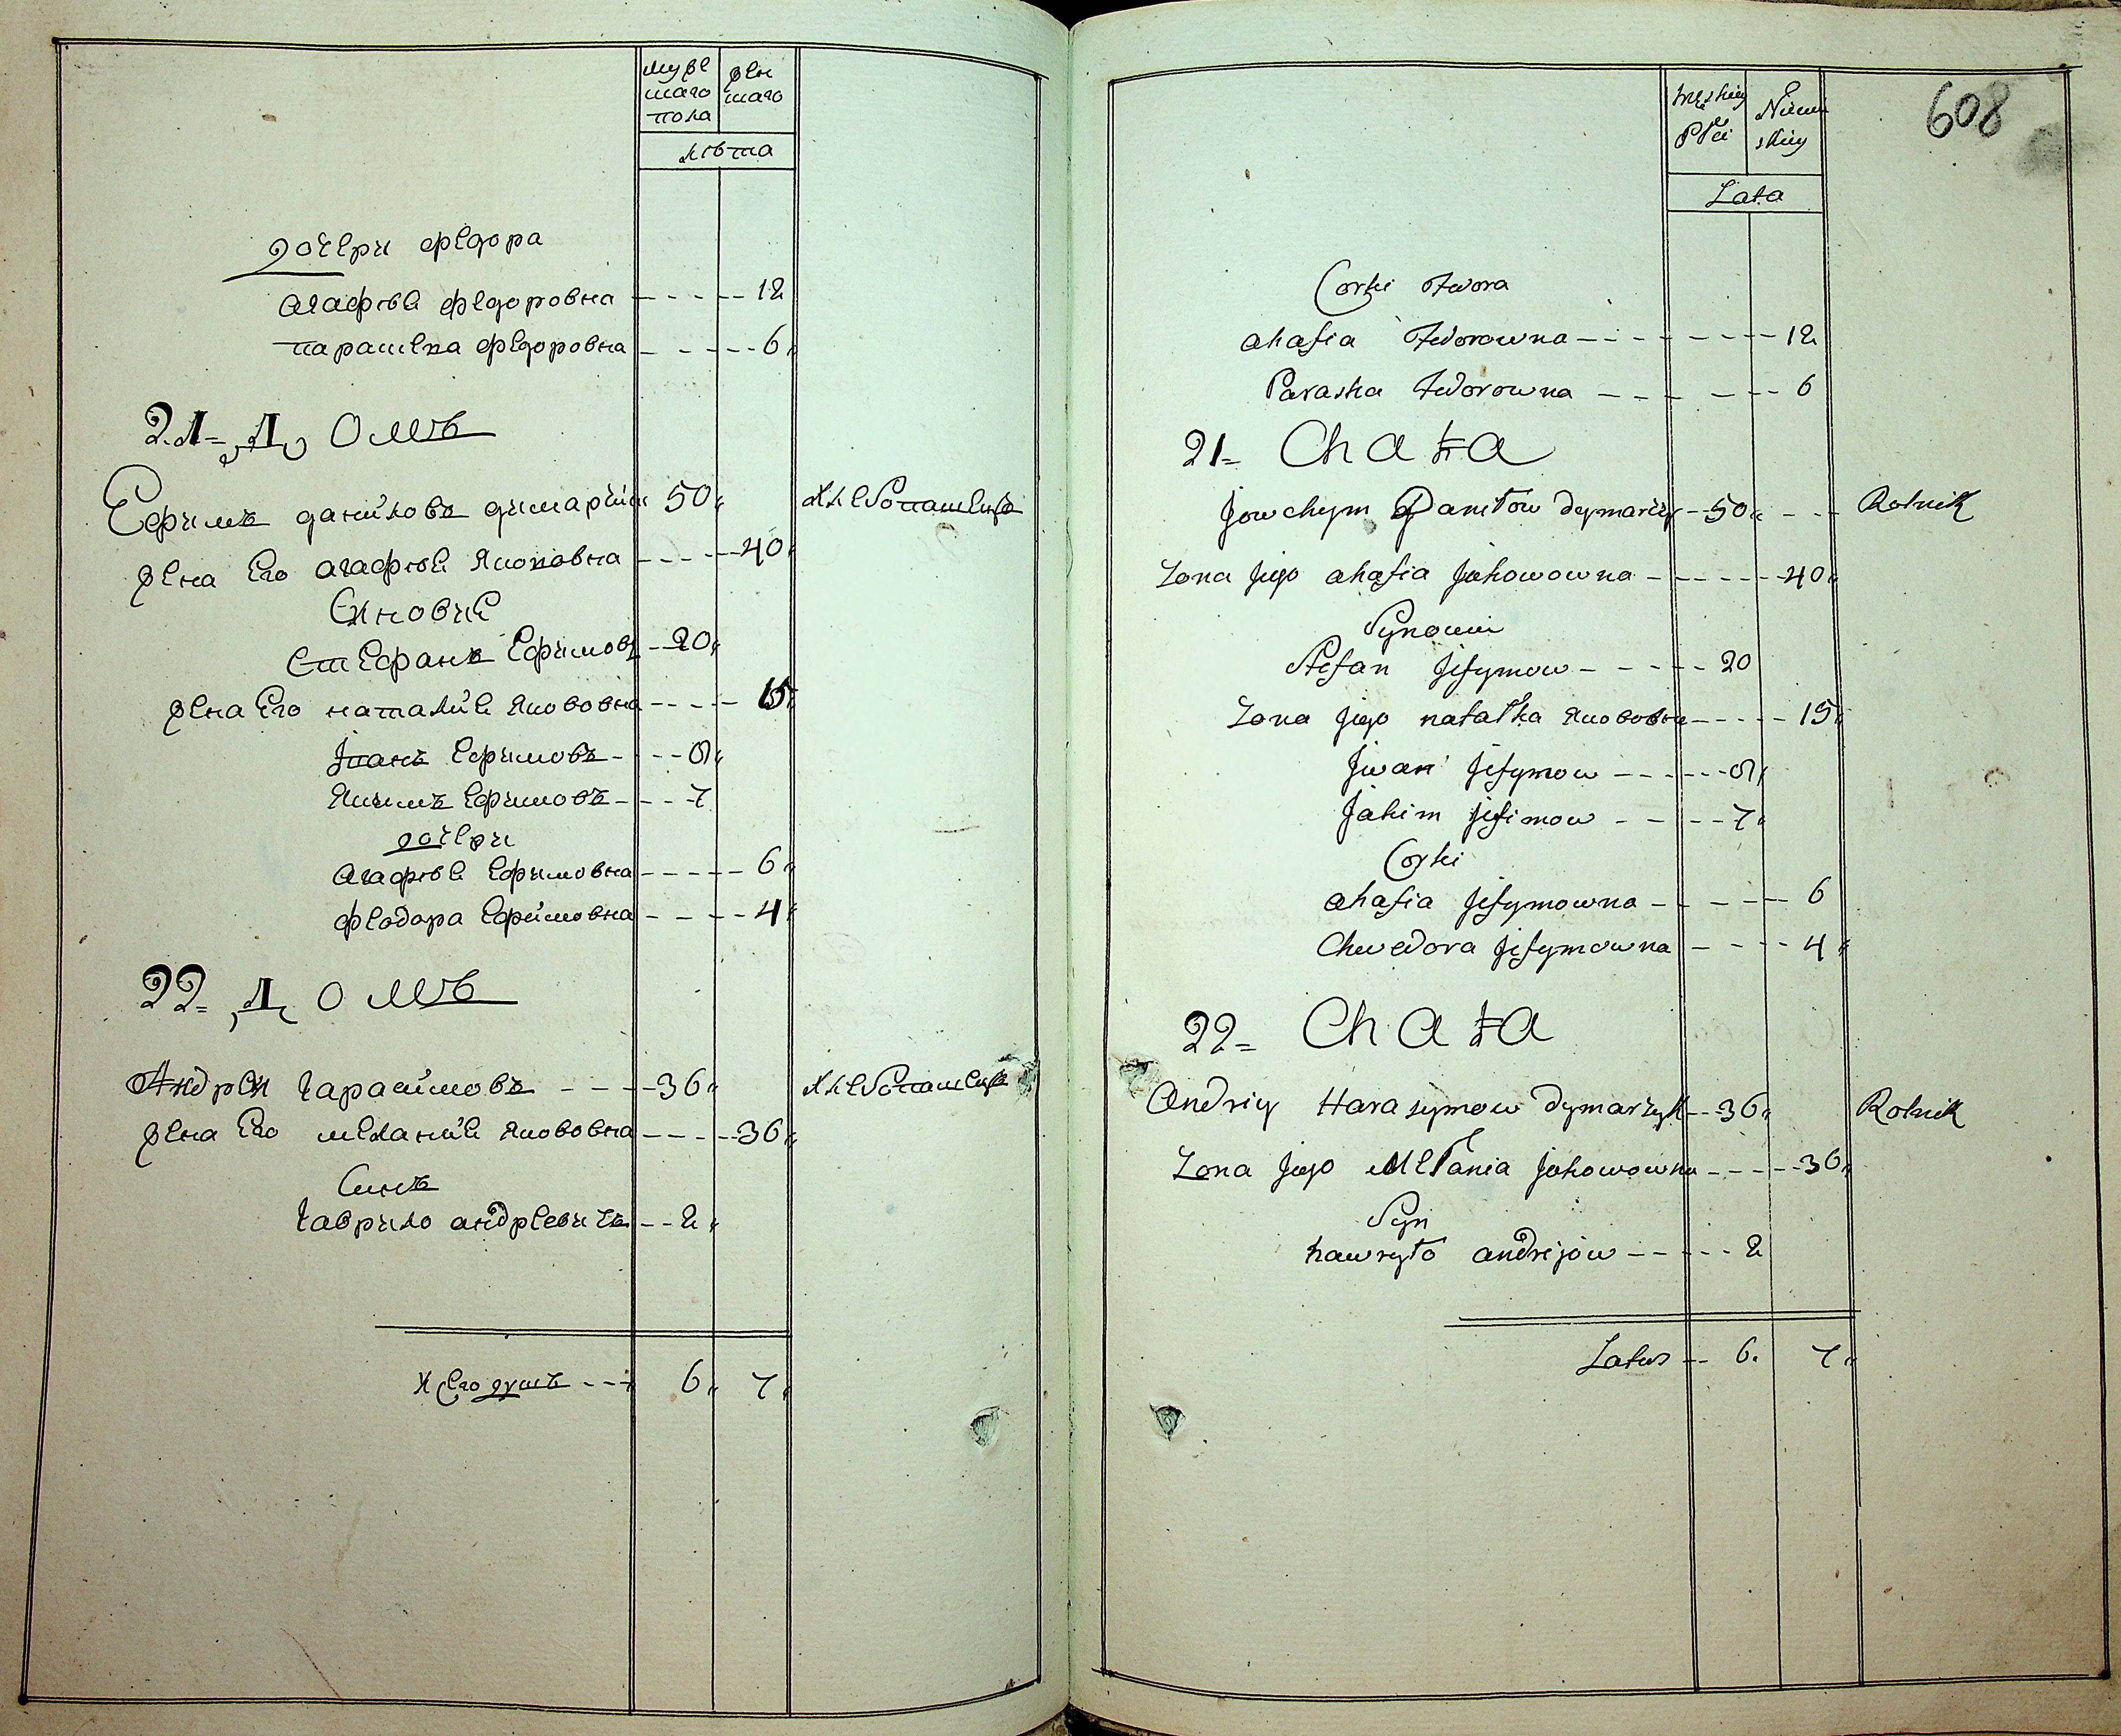 муже
шаго
пола
жен
шаго
лѣта
дочери федора
агафія федоровна - - - - 12
парашка федоровна - - - - 6
21 = Домъ
Ефимъ даниловъ димарчик 50 хлебопашецъ
жена Его агафія Якововна - - - - 40
Синовие
Стефанъ Ефимовъ - 20
жена Его наталия Якововна - - - - 15
Іванъ Ефимовъ - - - 9
Якимъ Ефимовъ - - - 7
дочери
агафія Ефимовна - - - - - 6
феодора Ефимовна - - - - 4
22 = Домъ
Андрей гарасимовъ - - - 36 хлебопашецъ
жена Его мелания Якововна - - - - 36
Синъ
гаврило андреевичъ - - 2
всего душъ - - - 6 7
608
Męskiey
Płci
Niewi
skiey
Lata
Corki Fedora
ahafia Fedorowna - - - - - - - 12
Paraska Fedorowna - - - - - 6
21 = Chata
Jowchym Daniłow dymarczyk - 50 - - - Rolnik
Zona Jego ahafia Jakowowna - - - - - - 40
Synowie
Stefan Jefymow - - - - - 20
Zona Jego natałka Якововна - - - - - 15
Jwan Jefymow - - - - - - 9
Jakim Jefimow - - - - - 7
Corki
ahafia Jefymowna - - - - - 6
Chwedora Jefymowna - - - - 4
22 = Chata
Andriy Harasymow dymarzyk - - 36 Rolnik
Zona Jego Mełania Jakowowna - - - - - 36
Syn
hawryło andrejow - - - - - 2
Latus - - 6. 7